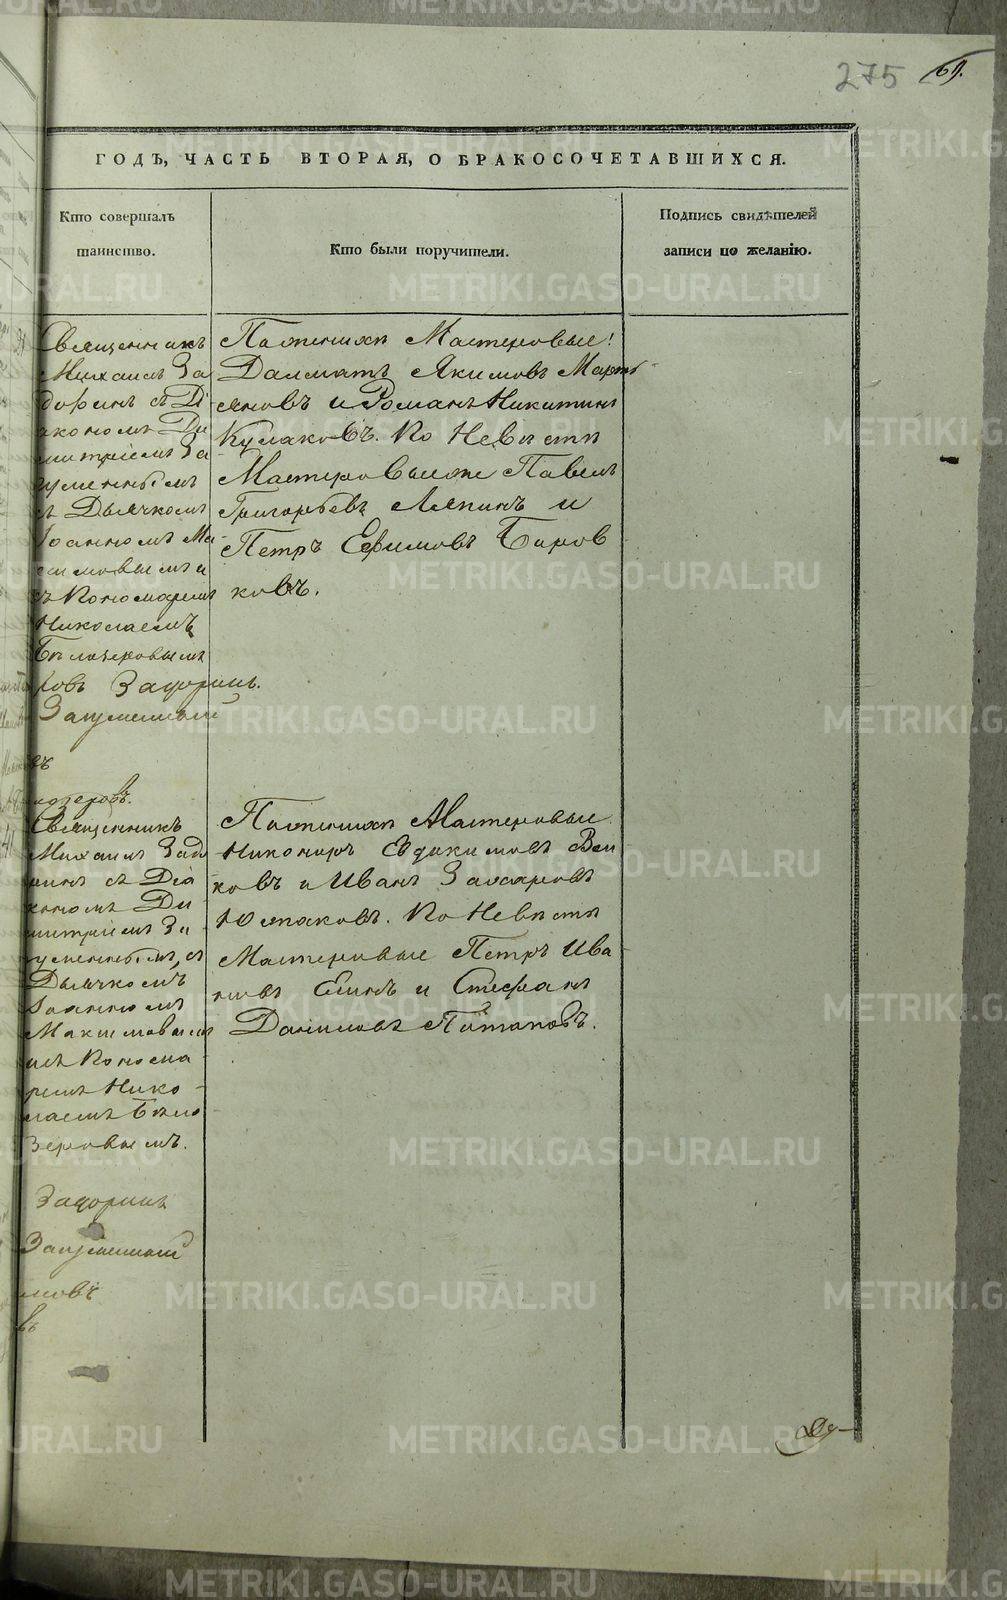 275
69.
ГОДЪ, ЧАСТЬ ВТОРАЯ, О БРАКОСОЧЕТАВШИХСЯ.
Кто совершалъ
таинство.
Кто были поручители.
Подпись свидѣтелей
записи по желанію.
Священникъ
Михаилъ За
доринъ съ Ді
акономъ Ди
митріемъ За
гуменнымъ
съ Дьячкомъ
Іоанномъ Ма
симовымъ и
съ Пономаремъ
Николаемъ
Бѣлозеровымъ
ровъ Задоринъ.
Загуменный
въ
лозеровъ.
По женихѣ Мастеровые:
Далматъ Якимовъ Марть
яновъ и Романъ Никитинъ
Кулаковъ. По Невѣстѣ
Мастеровыеже Павелъ
Григорьевъ Ляпинъ и
Петръ Ефимовъ Боров
ковъ.
Священникъ
Михаилъ Задо
ринъ съ Діа
кономъ Ди
митріемъ За
гуменнымъ, съ
Дьячкомъ
Іоанномъ
Максимовымъ
съ Поонома
ремъ Нико
лаемъ Бѣло
зеровымъ.
Задоринъ
Загуменный
мовъ
въ
По женихѣ Мастеровые
Никоноръ Евдокимовъ Вол
ковъ и Иванъ Захаровъ
Юшковъ. По Невѣстѣ
Мастеровые Петръ Ива
новъ Елинъ и Стефанъ
Даниловъ Потаповъ.
METRIKI.GASO-URAL.RU